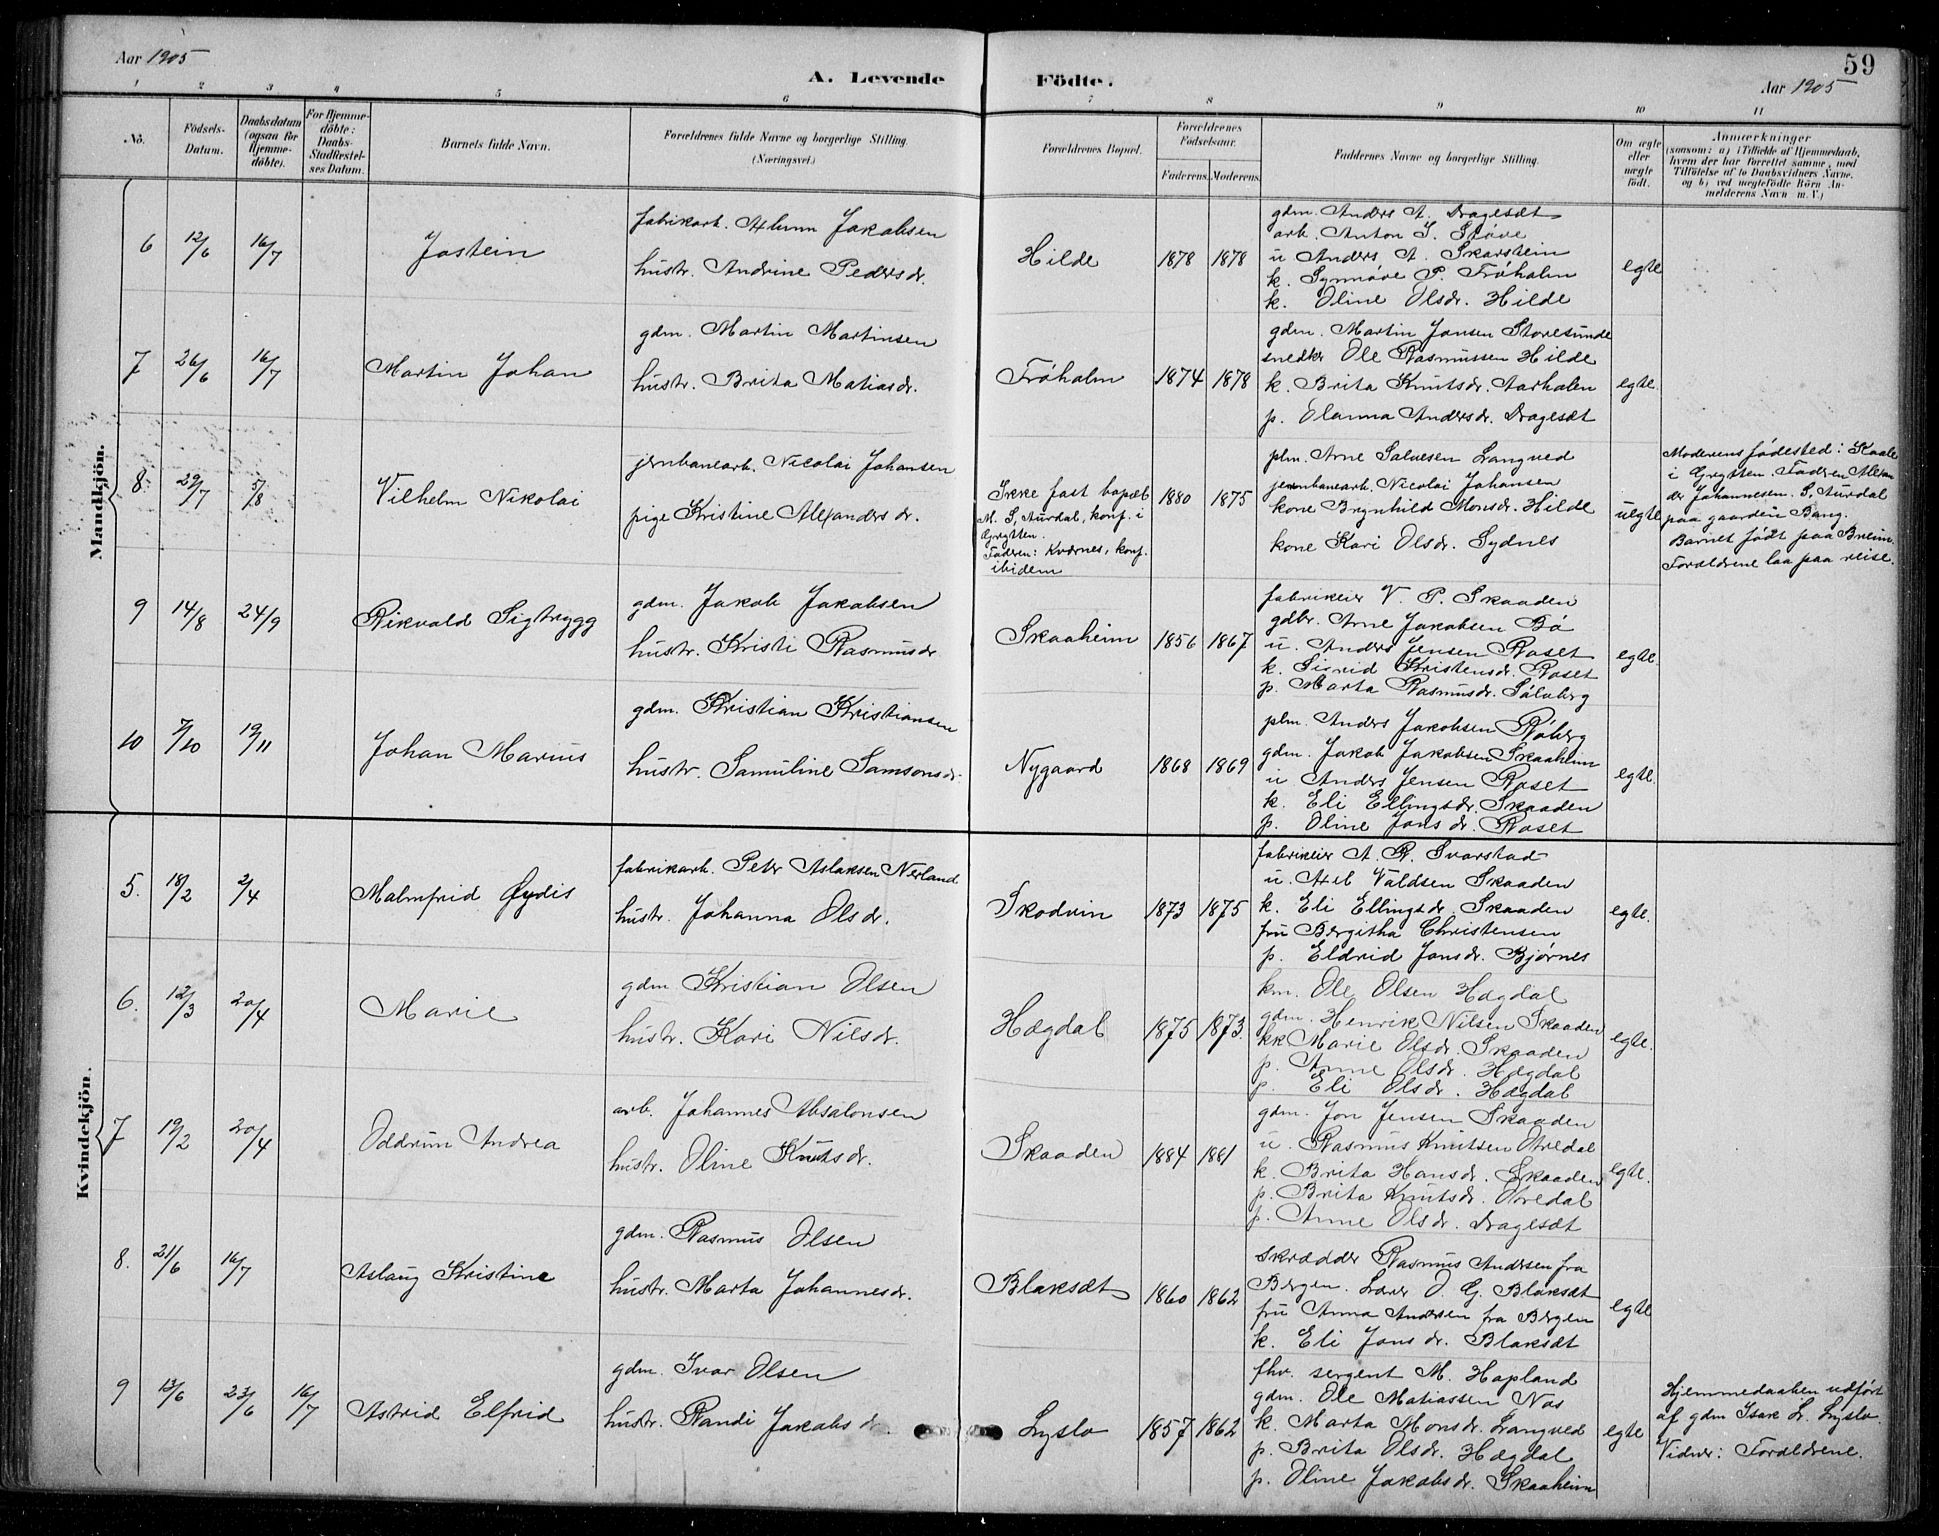 Aar 1905
A. Levende Födte.
59
Aar 1905
1 2 3 4 5 6 7 8 9 10 11
Nö.
Födsels-Datum.
Daabsdatum (ogsaa for Hjemme-döbte).
For Hjemme-döbte: Daabs-Stadfæstel-ses Datum.
Barnets fulde Navn.
Forældrenes fulde Navne og borgerlige Stilling. (Næringsvei.)
Forældrenes Bopæl.
Forældrenes Födselsaar.
Faderens. Moderens.
Faddernes Navne og borgerlige Stilling.
Om ægte eller uægte födt.
Anmærkninger
(saasom: a) i Tilfælde af Hjemmedaab,
hvem der har forrettet samme, med
Tilföielse af to Daabsvidners Navne.
og b) ved uægtefödte Börn An-
melderens Navn m. V.)
Mandkjön.
6 12/6 16/7 Jostein
fabrikarb. Jakobsen
hustr. Andrine Pedersdr.
Hilde 1878 1878
gdm. Anders A. Dragesæt
arb. Anton J. Støve
u Anders A. Skarstein
k. Synnøve P. Frøholm
k. Oline Olsdr. Hilde
egte
7 26/6 16/7 Martin Johan
gdm. Martin Martinsen
hustr. Brita Matiasdr.
Frøholm 1874 1878
gdm. Martin Jansen Storesunde
snedkr Ole Rasmussen Hilde
k. Brita Knutsdr. Aarholen
p. Olanna Andersdr. Dragesæt
egte.
8. 29/7 5/8 Vilhelm Nikolai
jernbanearb. Nicolai Johansen
pige Kristine Alexandersdr.
Ikke fast bopæl
M. S, Aurdal, konf. i
Grytten.
Fadren: Kvernes, konf.
ibidem
1880 1875
plm. Arne Salvesen Langved
jernbanearb. Nicolai Johansen
kone Brynhild Monsdr. Hilde
kone Kari Olsdr. Sydnes
uegte
Moderens fødested: Kaale
i Grytten. Fadren Alexan
der Johannesen. S, Aurdal
paa gaarden Bang.
Barnet født paa Breim.
Forældrene laa paa reise.
9 14/8 24/9 Rikvald Sigtrygg
gdm. Jakob Jakobsen
hustr. Kristi Rasmusdr
Skaaheim 1856 1867
fabrikeier V. P. Skaaden
gdbr. Arne Jakobsen Bø
u. Anders Jensen Roset
k. Sigrid Kristensdr. Roset
p. Marta Rasmusdr. Sølvberg
egte.
10 7/10 19/11 Johan Marius
gdm. Kristian Kristiansen
hustr. Samuline Samsonsdr.
Nygaard 1868 1869
plm. Anders Jakobsen Røberg
gdm. Jakob Jakobsen Skaaheim
u Anders Jensen Roset
k. Eli Ellingsdr. Skaaden
p. Oline Jonsdr. Roset
egte.
Kvindekjön.
5. 18/2 2/4 Malmfrid Øydis
fabrikarb. Peter Aslaksen Nerland
hustr. Johanna Olsdr.
Skodvin 1873 1875
fabrikeier A. R. Svarstad
u. Valdsen Skaaden
k. Eli Ellingsdr. Skaaden
fru Bergitha Christensen
p. Eldrid Jonsdr. Bjørnes
egte.
6. 12/3 20/4 Marie
gdm Kristian Olsen
hustr. Kari Nilsdr.
Hægdal 1875 1873.
km. Ole Olsen Hægdal
gdm. Henrik Nilsen Skaaden
kk Marie Olsdr. Skaaden
p. Anne Olsdr. Hægdal
p. Eli Olsdr. Hægdal
egte.
7 19/2 20/4 Oddrun Andrea
arb. Johannes Absalonsen
hustr. Oline Knutsdr.
Skaaden 1884 1881
gdm. Jon Jensen Skaaden
u. Rasmus Knutsen Otredal
k. Brita Hansdr. Skaaden
p. Brita Knutsdr. Otredal
p. Anne Olsdr. Dragesæt
egte.
8. 21/6 16/7 Aslaug Kristine
gdm. Rasmus Olsen
hustr. Marta Johannesdr.
Blaksæt 1860 1862
Skrædder Rasmus Andersen fra
Bergen. Lærer O. G. Blaksæt
fru Anna Andersen fra Bergen
k. Eli Jonsdr. Blaksæt
egte
9 13/6 23/6 16/7 Astrid Elfrid
gdm. Ivar Olsen
hustr. Randi Jakobsdr.
Lyslo 1857 1862
fhv. sergent M. Hopland
gdm. Ole Matiassen Nos
k. Marta Monsdr. Langved
p. Brita Olsdr. Hægdal
p. Oline Jakobsdr. Skaaheim
egte
Hjemmedaaben udført
af gdm Isak L. Lyslo.
Vidner: Forældrene.